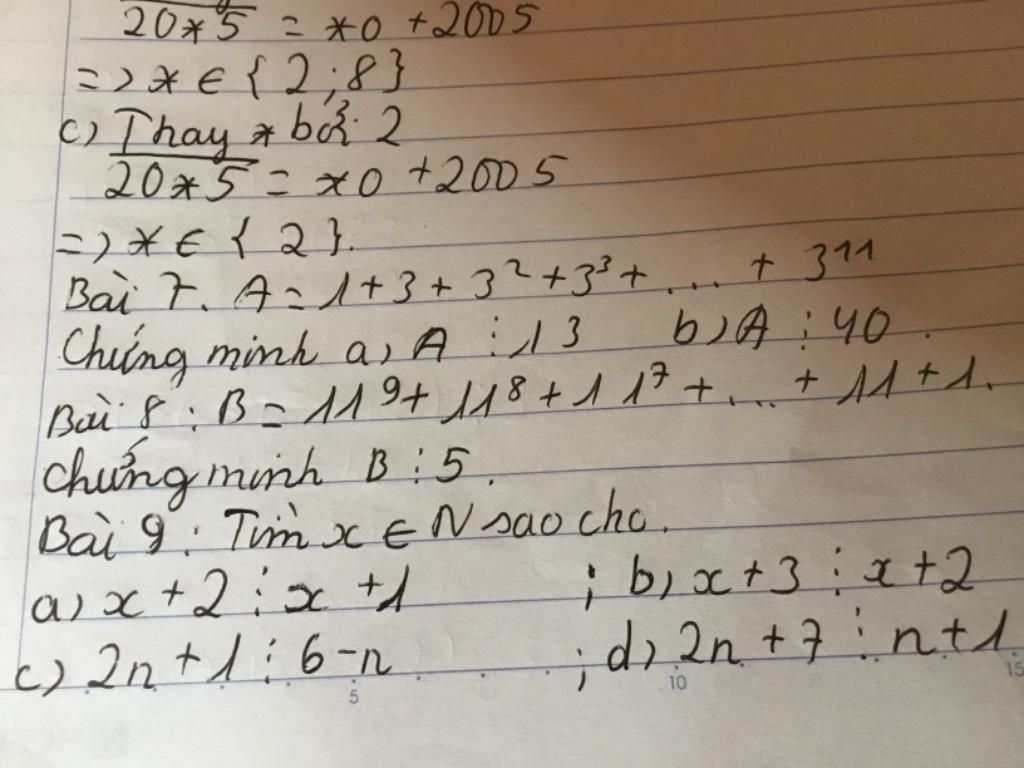 20*5 = *0 + 2005
=> * ∈ { 2 ; 8 }
c) Thay * bởi 2
20*5 = *0 + 2005
=> * ∈ { 2 }.
Bài 7. A = 1 + 3 + 3² + 3³ + ... + 3¹¹
Chứng minh a) A ⋮ 13 b) A ⋮ 40.
Bài 8 : B = 11⁹ + 11⁸ + 11⁷ + ... + 11 + 1.
Chứng minh B ⋮ 5.
Bài 9 : Tìm x ∈ N sao cho.
a) x + 2 ⋮ x + 1 ; b) x + 3 ⋮ x + 2
c) 2n + 1 ⋮ 6 - n ; d) 2n + 7 ⋮ n + 1
5 10 15